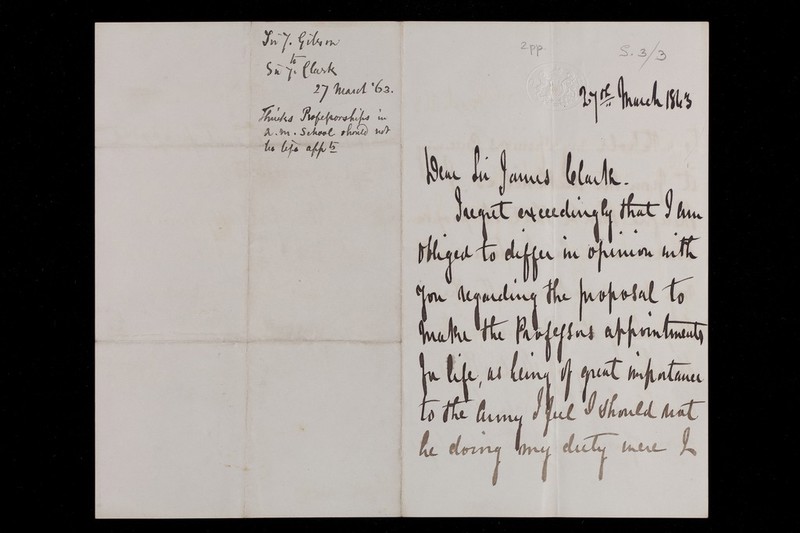 Sir J. Gibson
to
Sir J. Clark
27 March '63.
Thinks Professorships in
A.M. School should not
be life appts
2pp.
S. 3/3
27th March 1863
Dear Sir James Clark.
I regret exceedingly that I am
obliged to differ in opinion with
you regarding the proposal to
make the Professors appointments
for life, as being of great importance
to the Army I feel I should not
be doing my duty were I